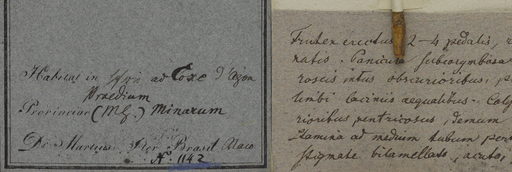 Habitat in ad Coxe d'Agoa
Praedium
Provinciae (M.G.) Minarum
Dr. Martius. Iter Brasil
N. 1142
Frutex erectus 2-4 pedalis,
natis. Panicula subcorymbosa
roseis intus obscurioribus,
limbi laciniis aequalibus. Caly
rioribus ventricosus, demum
stamina ad medium tubum
stigmate bilamellato, acuto,